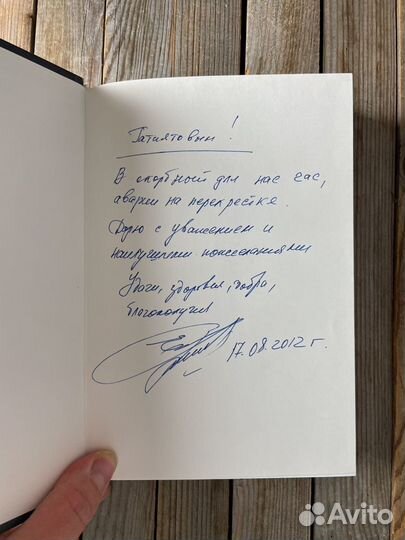 Гатиятовым!
В скорбный для нас час,
аварии на перекрестке.
Дарю с уважением и
наилучшими пожеланиями
Удачи, здоровья, добра,
благополучия
17.08.2012 г.
Avito